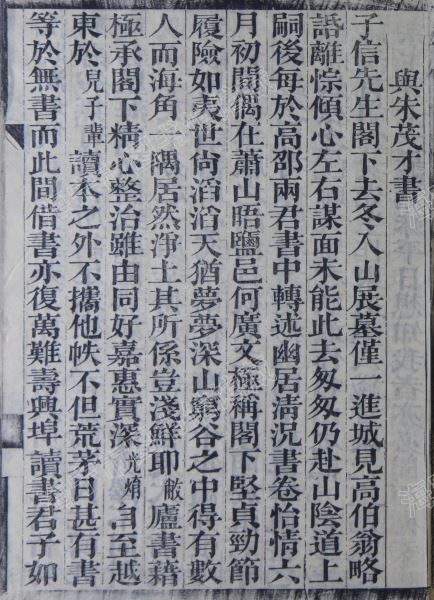 與朱茂才書
子信先生閣下去冬入山展墓僅一進城見高伯翁略
諗離悰傾心左右謀面未能此去匆匆仍赴山陰道上
嗣後每於高邵兩君書中轉述幽居清況書卷怡情六
月初間偶住蕭山晤鹽邑何廣文極稱閣下堅貞勁節
履險如夷世尙滔滔天猶夢夢深山窮谷之中得有數
人而海角一隅居然淨土其所係豈淺鮮耶敝廬書藉
極承閣下精心整治雖由同好嘉惠實深光焇自至越
東於兒子輩讀本之外不攜他帙不但荒茅日甚有書
等於無書而此間借書亦復萬難壽興埠讀書君子如